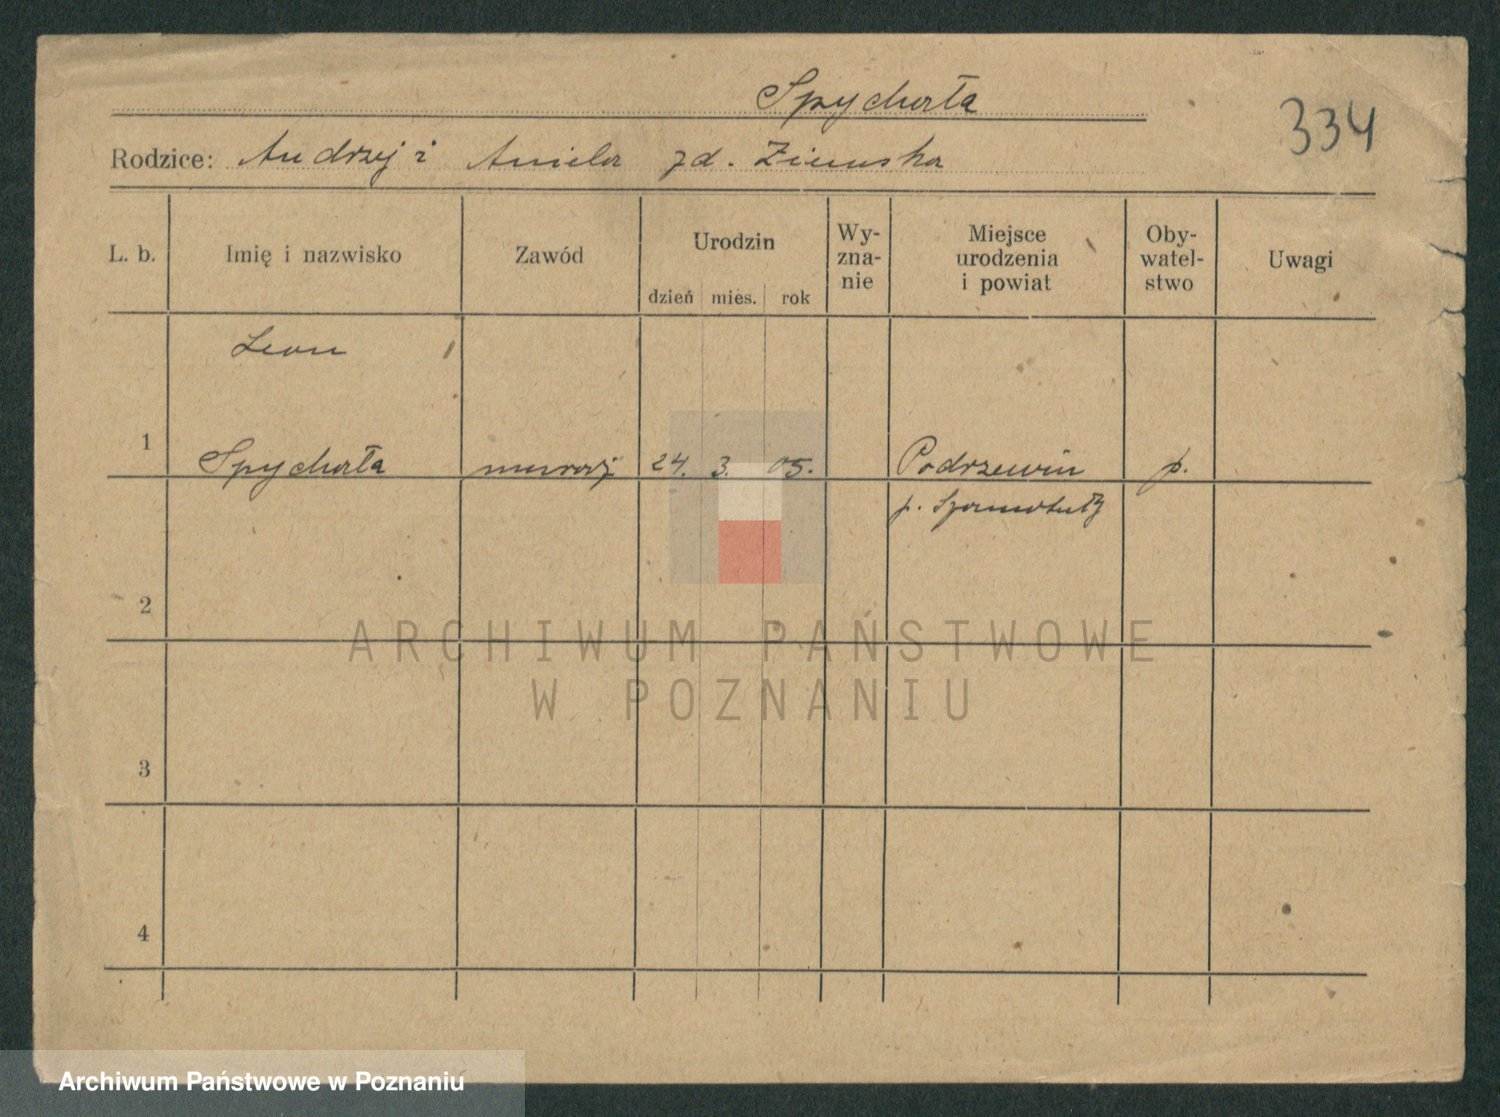 Spychała
334
Rodzice: Andrzej i Aniela zd. Zimuska
L. b. Imię i nazwisko Zawód Urodzin Wy-zna-nie Miejsce urodzenia i powiat Oby-watel-stwo Uwagi
dzień mies. rok
Leon
1 Spychała murarz 24. 3. 05. Podrzewin p.
p. Szamotuły
2
ARCHIWUM PAŃSTWOWE
W POZNANIU
3
4
Archiwum Państwowe w Poznaniu